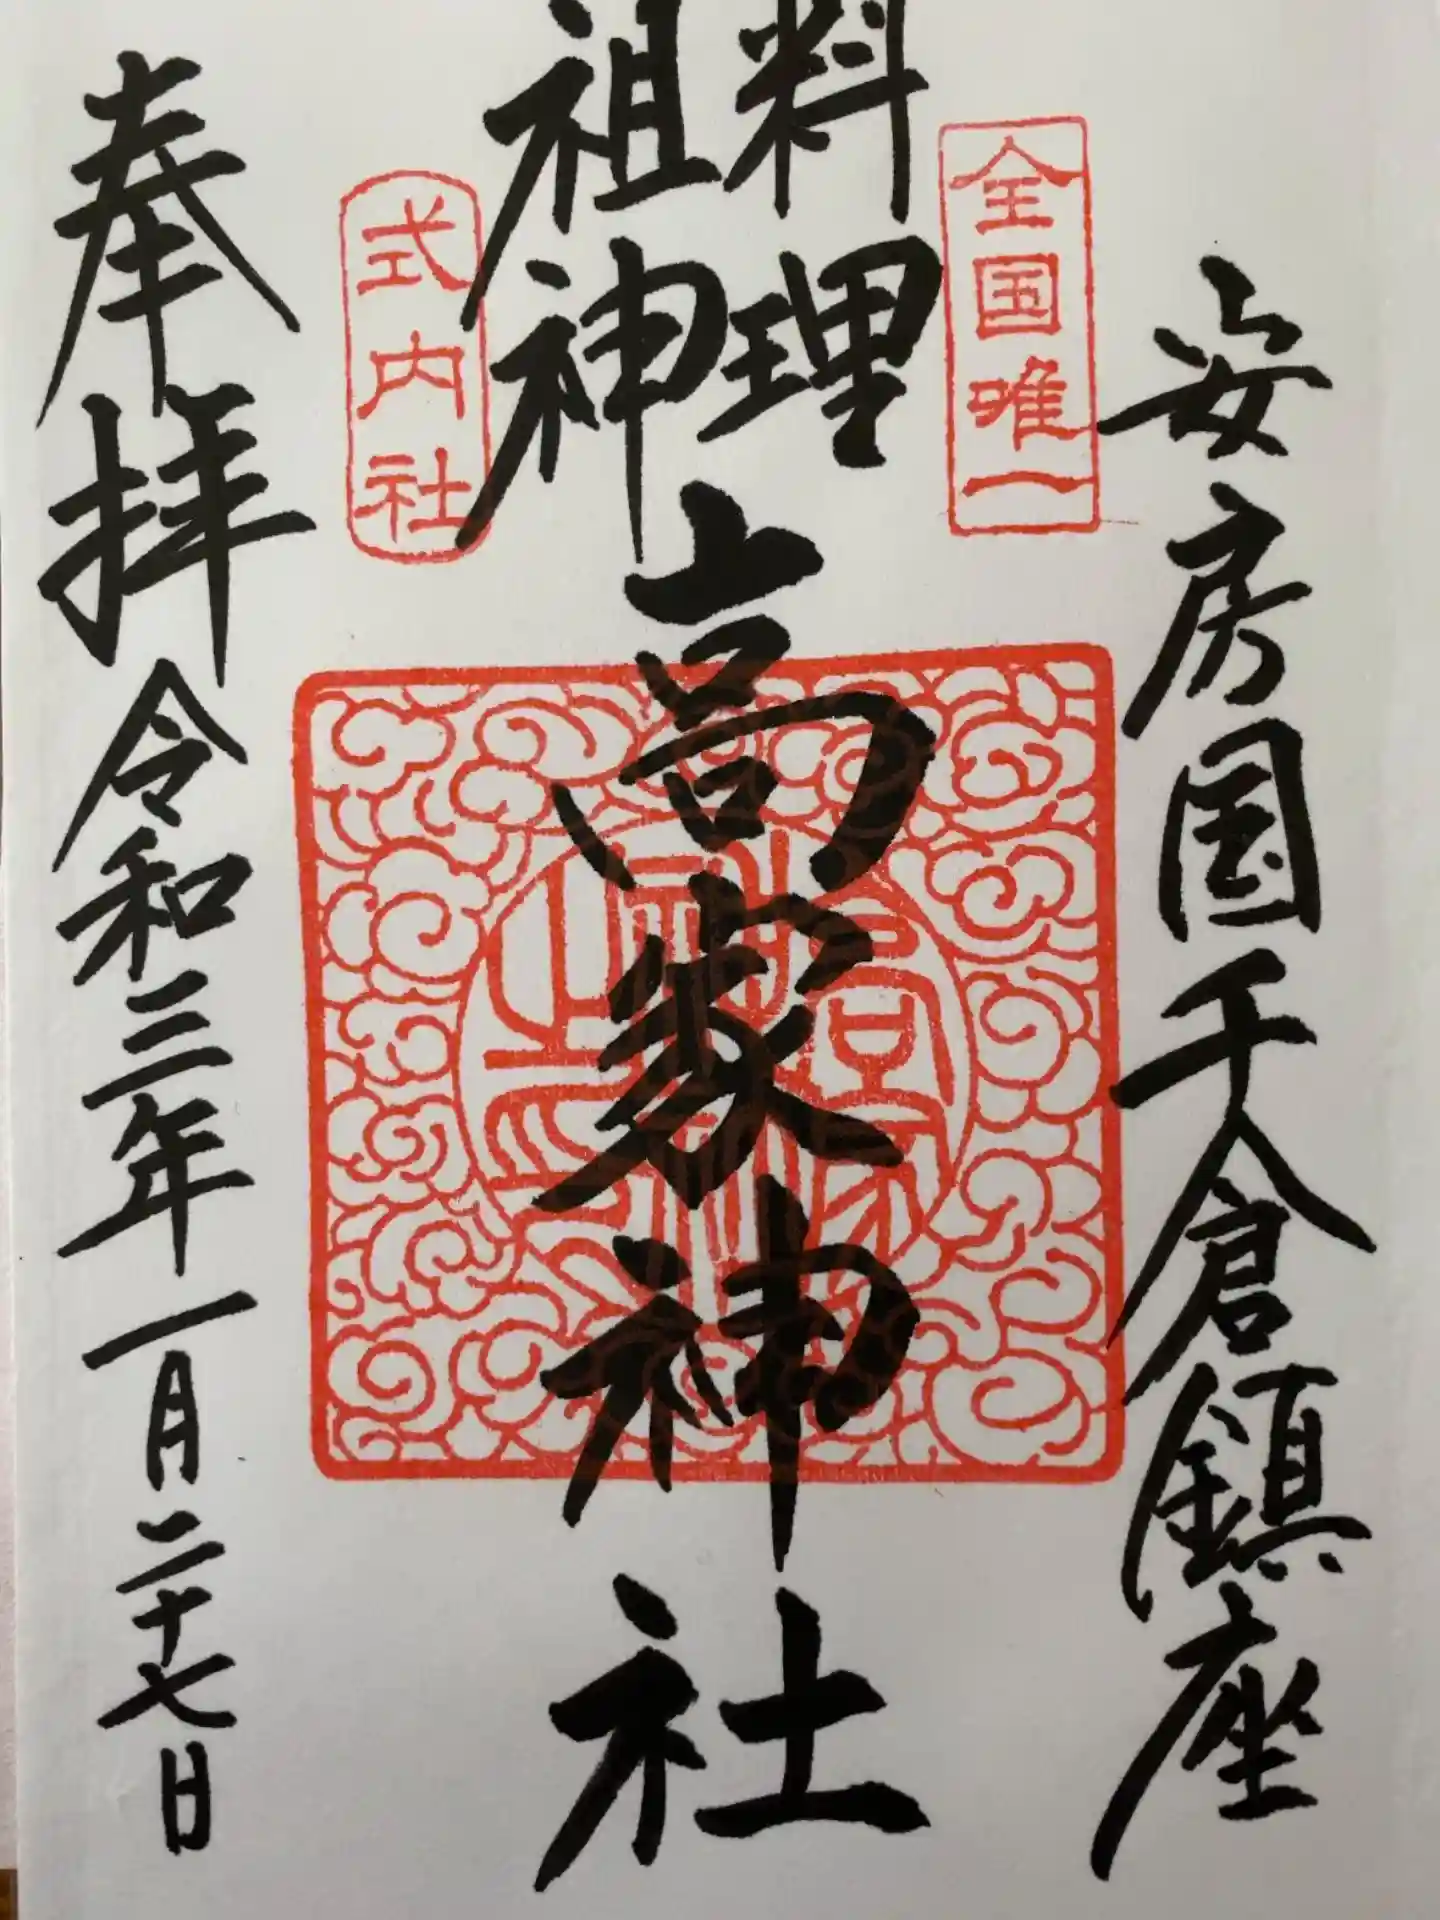 安房国千倉鎮座
全国唯一
料理
祖神
高家神社
式内社
奉拝
令和三年一月二十七日